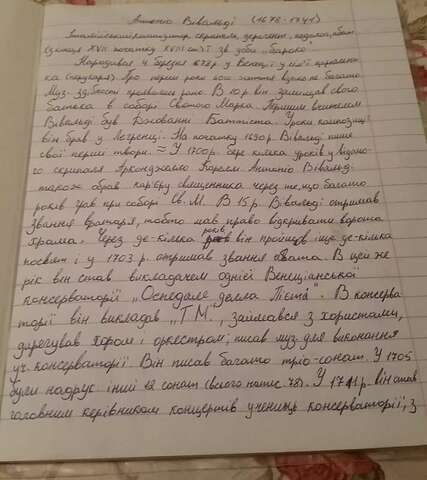 Антоніо Вівальді (1678-1741)
Італійський композитор, скрипаль, диригент, педагог, абат.
(кінця XVII початку XVIII ст.) зв доби „бароко"
Народився 4 березня 1678 р у Венеції у сім'ї
Про перші роки його життя відомо не багато.
Муз. здібності проявились рано. В 10 р. він заміщав свого
батька в соборі Святого Марка. Першим вчителем
Вівальді був Джованні Баттіста. Уроки композиції
він брав у Легренці. На початку 1690 р. Вівальді пише
свої перші твори. ≈ У 1700 р. бере кілька уроків у відомо-
го скрипаля Арканджело Кореллі Антоніо Вівальді
також обрав кар'єру священника через те, що багато
років грав при соборі Св. М. В 15 р. Вівальді отримав
звання вратаря, тобто мав право відкривати ворота
храма. Через де-кілька років він пройшов ще де-кілька
посвят і у 1703 р. отримав звання абата. В цей же
рік він став викладачем однієї Венеціанської
консерваторії „Оспедале делла Пієта". В консерва-
торії він викладав „Т М", займався з хористами,
диригував хором і оркестром; писав муз. для виконання
уч. консерваторії Він писав багато тріо-сонат. У 1705
були надрук. інші 12 сонат (всього напис. 78). У 1711 р. він став
головним керівником концертів учениць консерваторії, з